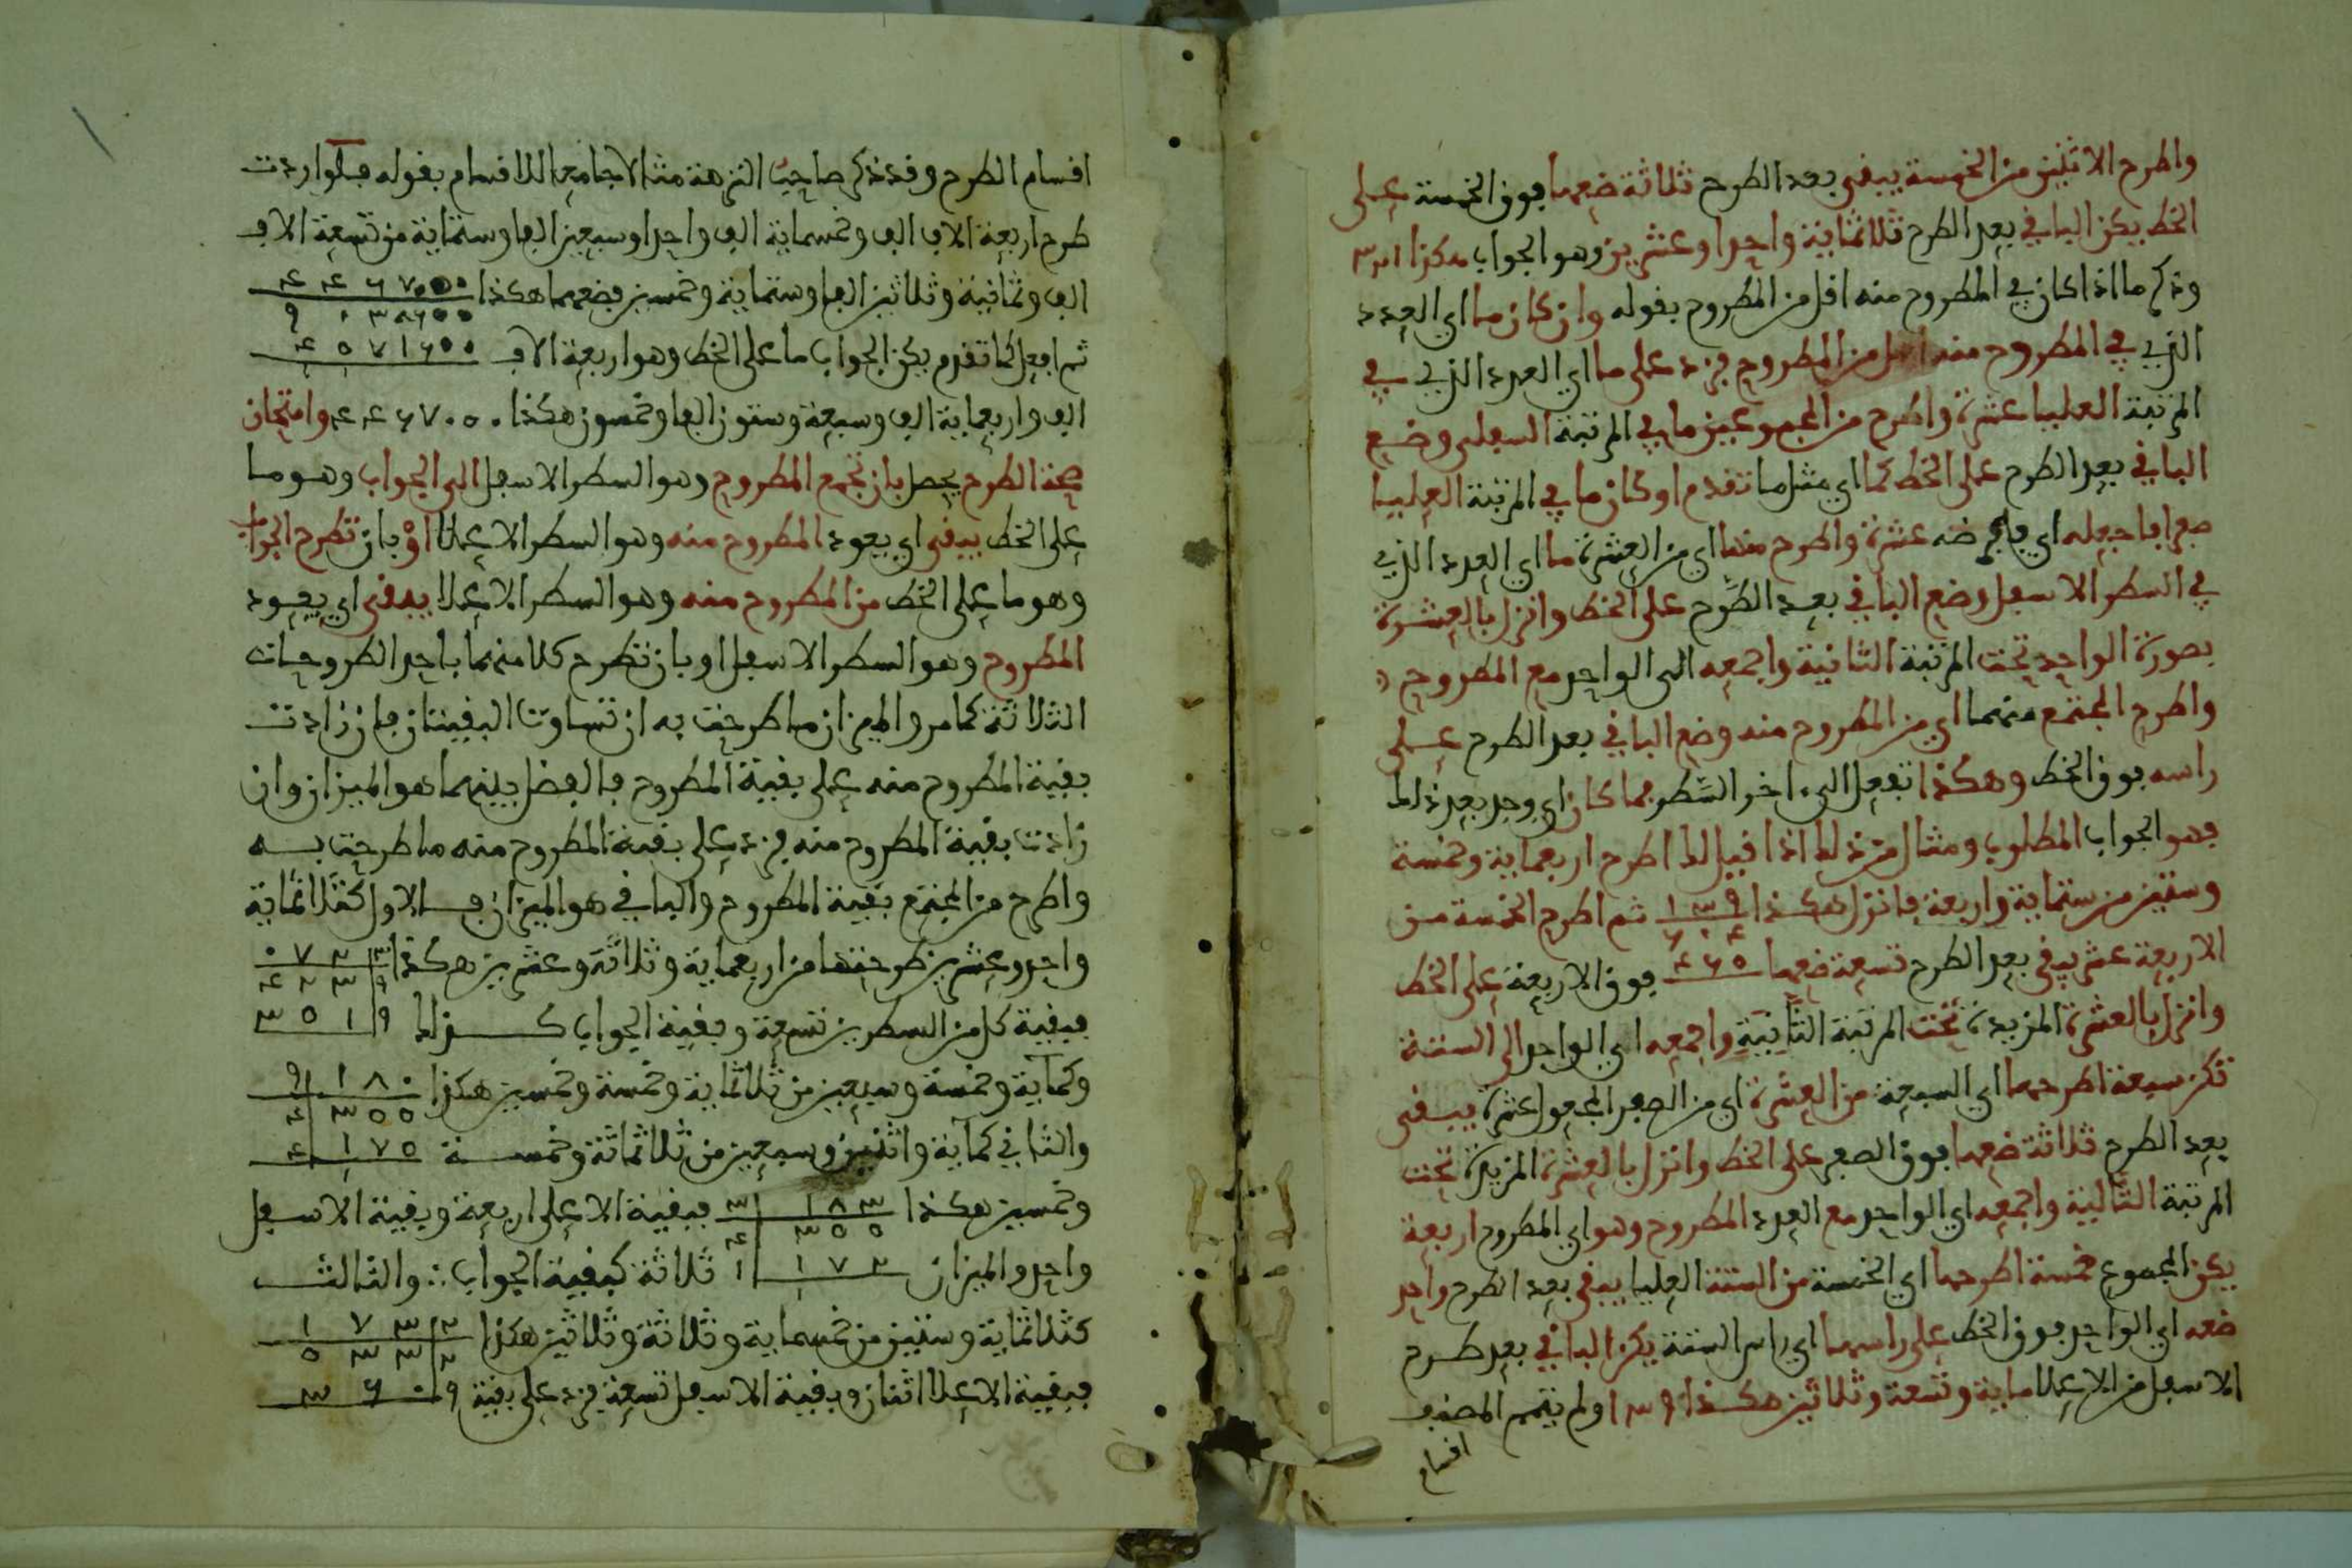 واطرح الاثنين من الخمسة يبقى بعد الطرح ثلاثة ضعها فوق الخمسة على
الخط يكن الباقي بعد الطرح ثلاثمائة واحدا وعشرين وهو الجواب هكذا ٣٢١
وذكر ما اذا كان في المطروح منه اقل من المطروح بقوله وان كان ما اي العدد
الذي في المطروح منه اقل من المطروح فزد على ما اي العدد الذي في
المرتبة العليا عشرة واطرح من المجموعين ما في المرتبة السفلى وضع
الباقي بعد الطرح على الخط كما اي مثل ما تقدم او كان ما في المرتبة العليا
صفرا فاجعله اي فافرضه عشرة واطرح منها اي من العشرة ما اي العدد الذي
في السطر الاسفل وضع الباقي بعد الطرح على الخط وانزل بالعشرة
بصورة الواحد تحت المرتبة الثانية واجمعه الى الواحد مع المطروح
واطرح المجتمع منهما اي من المطروح منه وضع الباقي بعد الطرح على
راسه فوق الخط وهكذا تفعل الى اخر السطر فما كان اي وجد بعد ذلك
فهو الجواب المطلوب ومثال من ذلك اذا قيل لك اطرح اربعماية وخمسة
وستين من ستماية واربعة فانزل هكذا ١٣٩ ثم اطرح الخمسة من
٦٠٤
الاربعة عشر يبقى بعد الطرح تسعة ضعها ٤٦٥ فوق الاربعة على الخط
وانزل بالعشرة المزيدة تحت المرتبة الثانية واجمعه اي الواحد الى الستة
تكن سبعة اطرحها اي السبعة من العشرة اي من الصفر المجعول عشرة يبقى
بعد الطرح ثلاثة ضعها فوق الصفر على الخط وانزل بالعشرة المزيدة تحت
المرتبة الثالثة واجمعه اي الواحد مع العدد المطروح وهو اي المطروح اربعة
يكن المجموع خمسة اطرحها اي الخمسة من الستة العليا يبقى بعد الطرح واحد
ضعه اي الواحد فوق الخط على راسها اي راس الستة يكن الباقي بعد طرح
الاسفل من الاعلا ماية وتسعة وثلاثين هكذا ١٣٩ ولم يتمم المصنف
اقسام
اقسام الطرح وقد ذكر صاحب النزهة مثالا جامعا للاقسام بقوله فلو اردت
طرح اربعة الاف الف وخمسماية الف واحدا وسبعين الفا وستماية من تسعة الاف
الف وثمانية وثلاثين الفا وستماية وخمسين فضعهما هكذا ٤٤٦٧٠٥٠
٩٠٣٨٦٥٠
ثم افعل كما تقدم يكن الجواب ما على الخط وهو اربعة الاف ٤٥٧١٦٠٠
الف واربعماية الف وسبعة وستون الفا وخمسون هكذا ٤٤٦٧٠٥٠ وامتحان
صحة الطرح يحصل بان تجمع المطروح وهو السطر الاسفل الى الجواب وهو ما
على الخط يبقى اي يعود المطروح منه وهو السطر الاعلا او بان تطرح الجواب
وهو ما على الخط من المطروح منه وهو السطر الاعلا يبقى اي يعود
المطروح وهو السطر الاسفل او بان تطرح كلا منهما باحد الطروحات
الثلاثة كما مر والميزان ما طرحت به ان تساوت البقيتان فان زادت
بقية المطروح منه على بقية المطروح فالفضل بينهما هو الميزان وان
زادت بقية المطروح منه فزد على بقية المطروح منه ما طرحت به
واطرح من المجتمع بقية المطروح والباقي هو الميزان فالاول كثلاثماية
واحد وعشرين طرحتها من اربعماية وثلاثة وعشرين هكذا
فبقية كل من السطرين تسعة وبقية الجواب كذلك ٩ ٣٥١
وكماية وخمسة وسبعين من ثلاثماية وخمسة وخمسين هكذا ١٨٠ ٩
٣٥٥ ٤
والثاني كماية واثنين وسبعين من ثلاثمائة وخمسة ١٧٥ ٤
وخمسين هكذا ١٨٣ ٣ فبقية الاعلى اربعة وبقية الاسفل
٣٥٥ ٤
واحد والميزان ١٧٢ ١ ثلاثة كبقية الجواب ∴ والثالث
كثلاثماية وستين من خمسماية وثلاثة وثلاثين هكذا ١٧٣ ٢
٥٣٣ ٢
فبقية الاعلا اثنان وبقية الاسفل تسعة فزد على بقية ٩ ٣٦٠